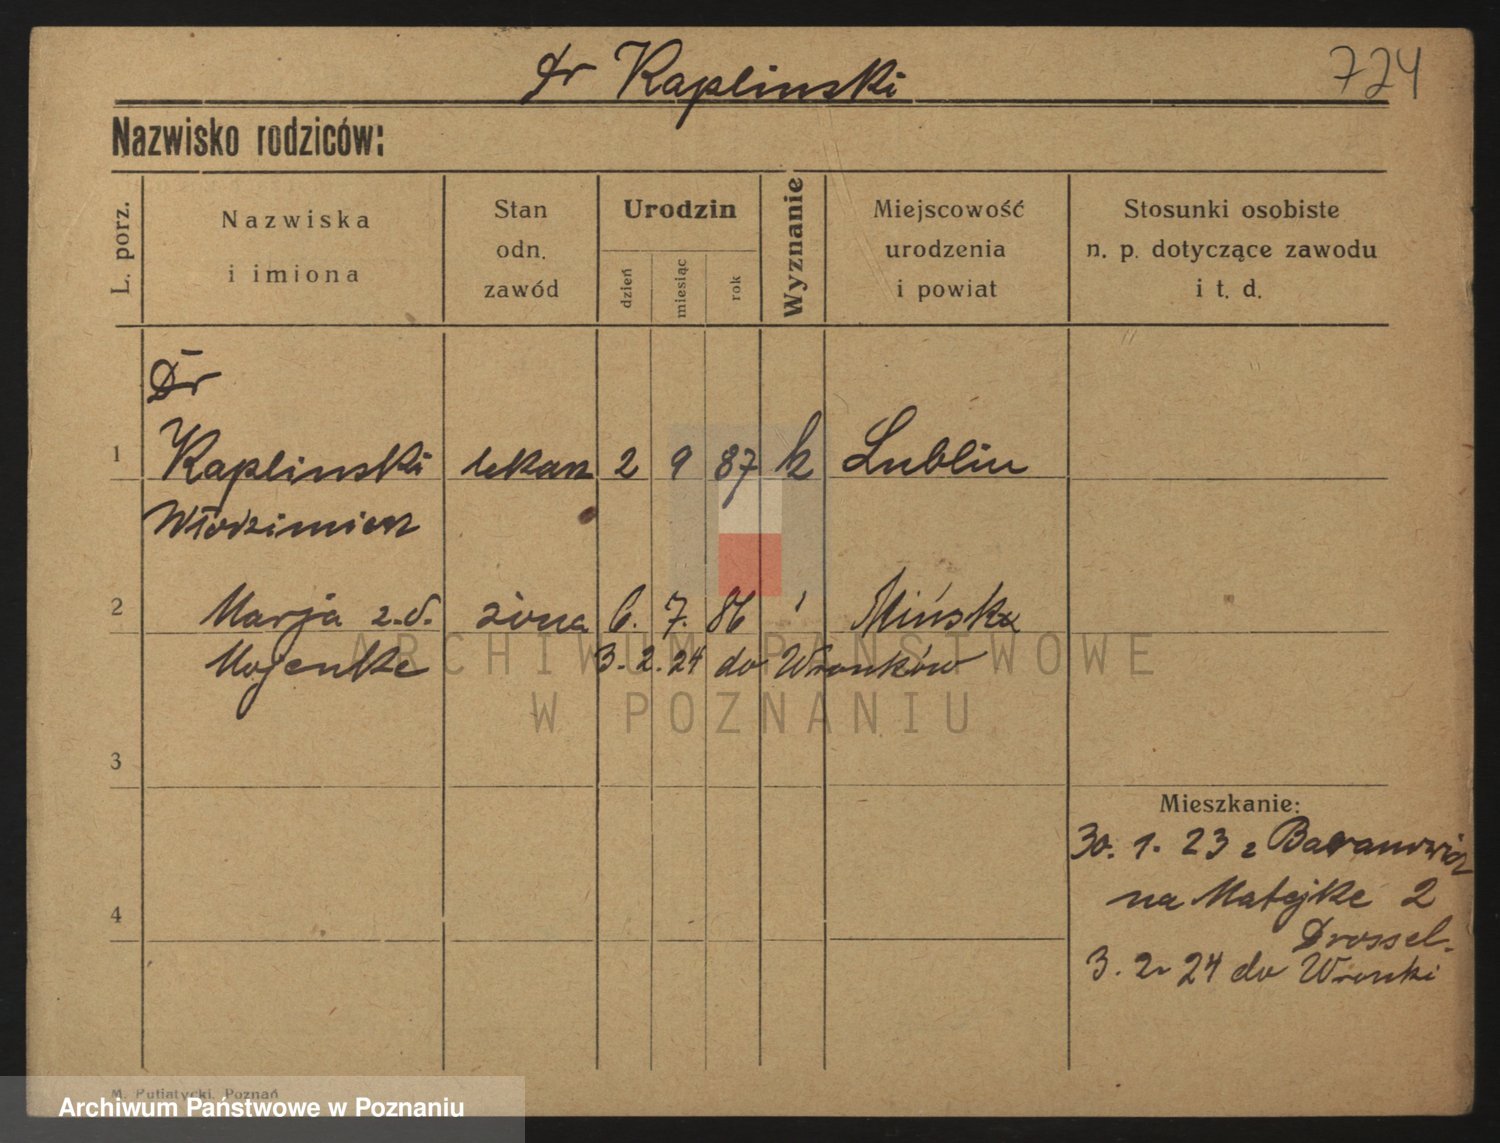 dr Kaplinski
724
Nazwisko rodziców:
L. porz.
Nazwiska
i imiona
Stan
odn.
zawód
Urodzin
dzień
miesiąc
rok
Wyznanie
Miejscowość
urodzenia
i powiat
Stosunki osobiste
n. p. dotyczące zawodu
i t. d.
Dr
1 Kaplinski lekarz 2 9 87 k Lublin
Włodzimierz
2 Marja z.d. żona 6. 7. 86 Mińsk
3. 2. 24 do Wronków
3
Mieszkanie:
30. 1. 23 z
na Matejke 2
4
Drossel.
3. 2. 24 do Wronki
M. Putiatycki, Poznań
ARCHIWUM PAŃSTWOWE
W POZNANIU
Archiwum Państwowe w Poznaniu